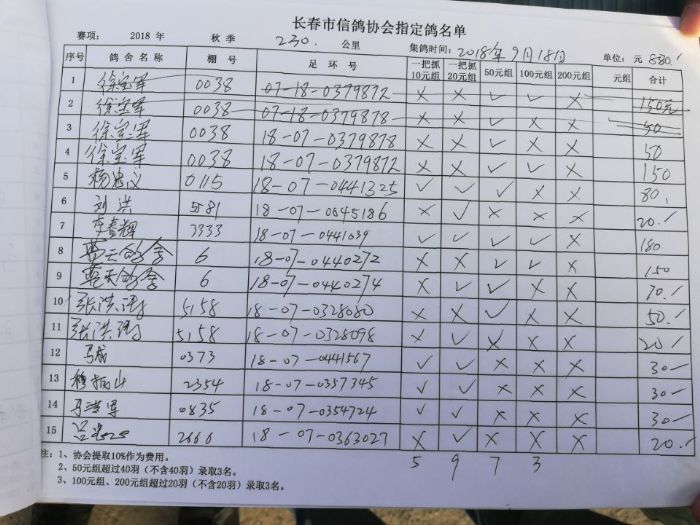 长春市信鸽协会指定鸽名单
赛项: 2018 年 秋 季 230. 公里 集鸽时间: 2018年9月18日 单位: 元 880.
序号 鸽 舍 名 称 棚 号 足 环 号 一把抓10元组 一把抓20元组 50元组 100元组 200元组 元组 合计
1 徐宝军 0038 07-18-0379872 × × ✓ ✓ × 150元
2 徐宝军 0038 07-18-0379878 × × ✓ × × 50
3 徐宝军 0038 18-07-0379878 × × ✓ × × 50
4 徐宝军 0038 18-07-0379872 × × ✓ ✓ × 150
5 杨忠义 0115 18-07-0441325 ✓ ✓ ✓ × × 80.
6 刘洪 5581 18-07-0645186 × ✓ × × × 20.
7 李春辉 3333 18-07-0441039 ✓ ✓ ✓ ✓ × 180
8 6 18-07-0440272 × × ✓ ✓ × 150
9 6 18-07-0440274 × ✓ ✓ × × 70.
10 5158 18-07-0328080 × × ✓ × × 50.
11 5158 18-07-0328098 × ✓ × × × 20
12 马成 0373 18-07-0441567 ✓ ✓ × × × 30
13 穆振山 2354 18-07-0357345 ✓ ✓ × × × 30
14 0835 18-07-0354724 ✓ ✓ × × × 30
15 2666 18-07-0363027 × ✓ × × × 20.
5 9 7 3
注: 1、协会提取10%作为费用。
2、50元组超过40羽(不含40羽)录取3名。
3、100元组、200元组超过20羽(不含20羽)录取3名。